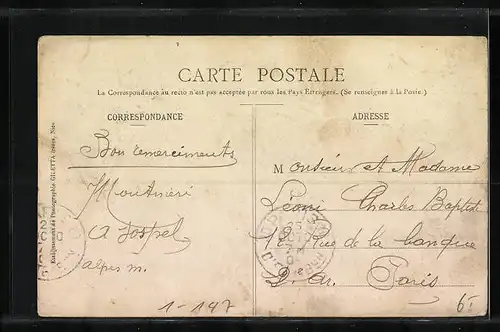 CARTE POSTALE
La Correspondance au recto n'est pas acceptée par tous les Pays Étrangers. (Se renseigner à la Poste.)
CORRESPONDANCE
ADRESSE
Bon remerciments
a Sospel
alpes m.
Monsieur et Madame
Léoni Charles Baptiste
12 Rue de la banque
2. Ar. Paris
1-147
65
Établissements de Photographie GILETTA frères, Nice